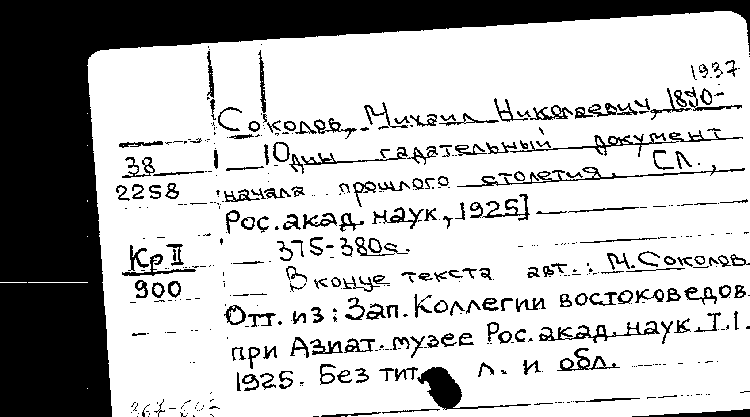 1937
Соколов, Михаил Николаевич, 1890-
38 Один гадательный документ
2258 начала прошлого столетия. [Л.,
Рос. акад. наук, 1925].
Кр II 375-380 с.
900 В конце текста авт.: М. Соколов
Отт. из: Зап. Коллегии востоковедов
при Азиат. музее Рос. акад. наук. Т. I.
1925. Без тит. л. и обл.